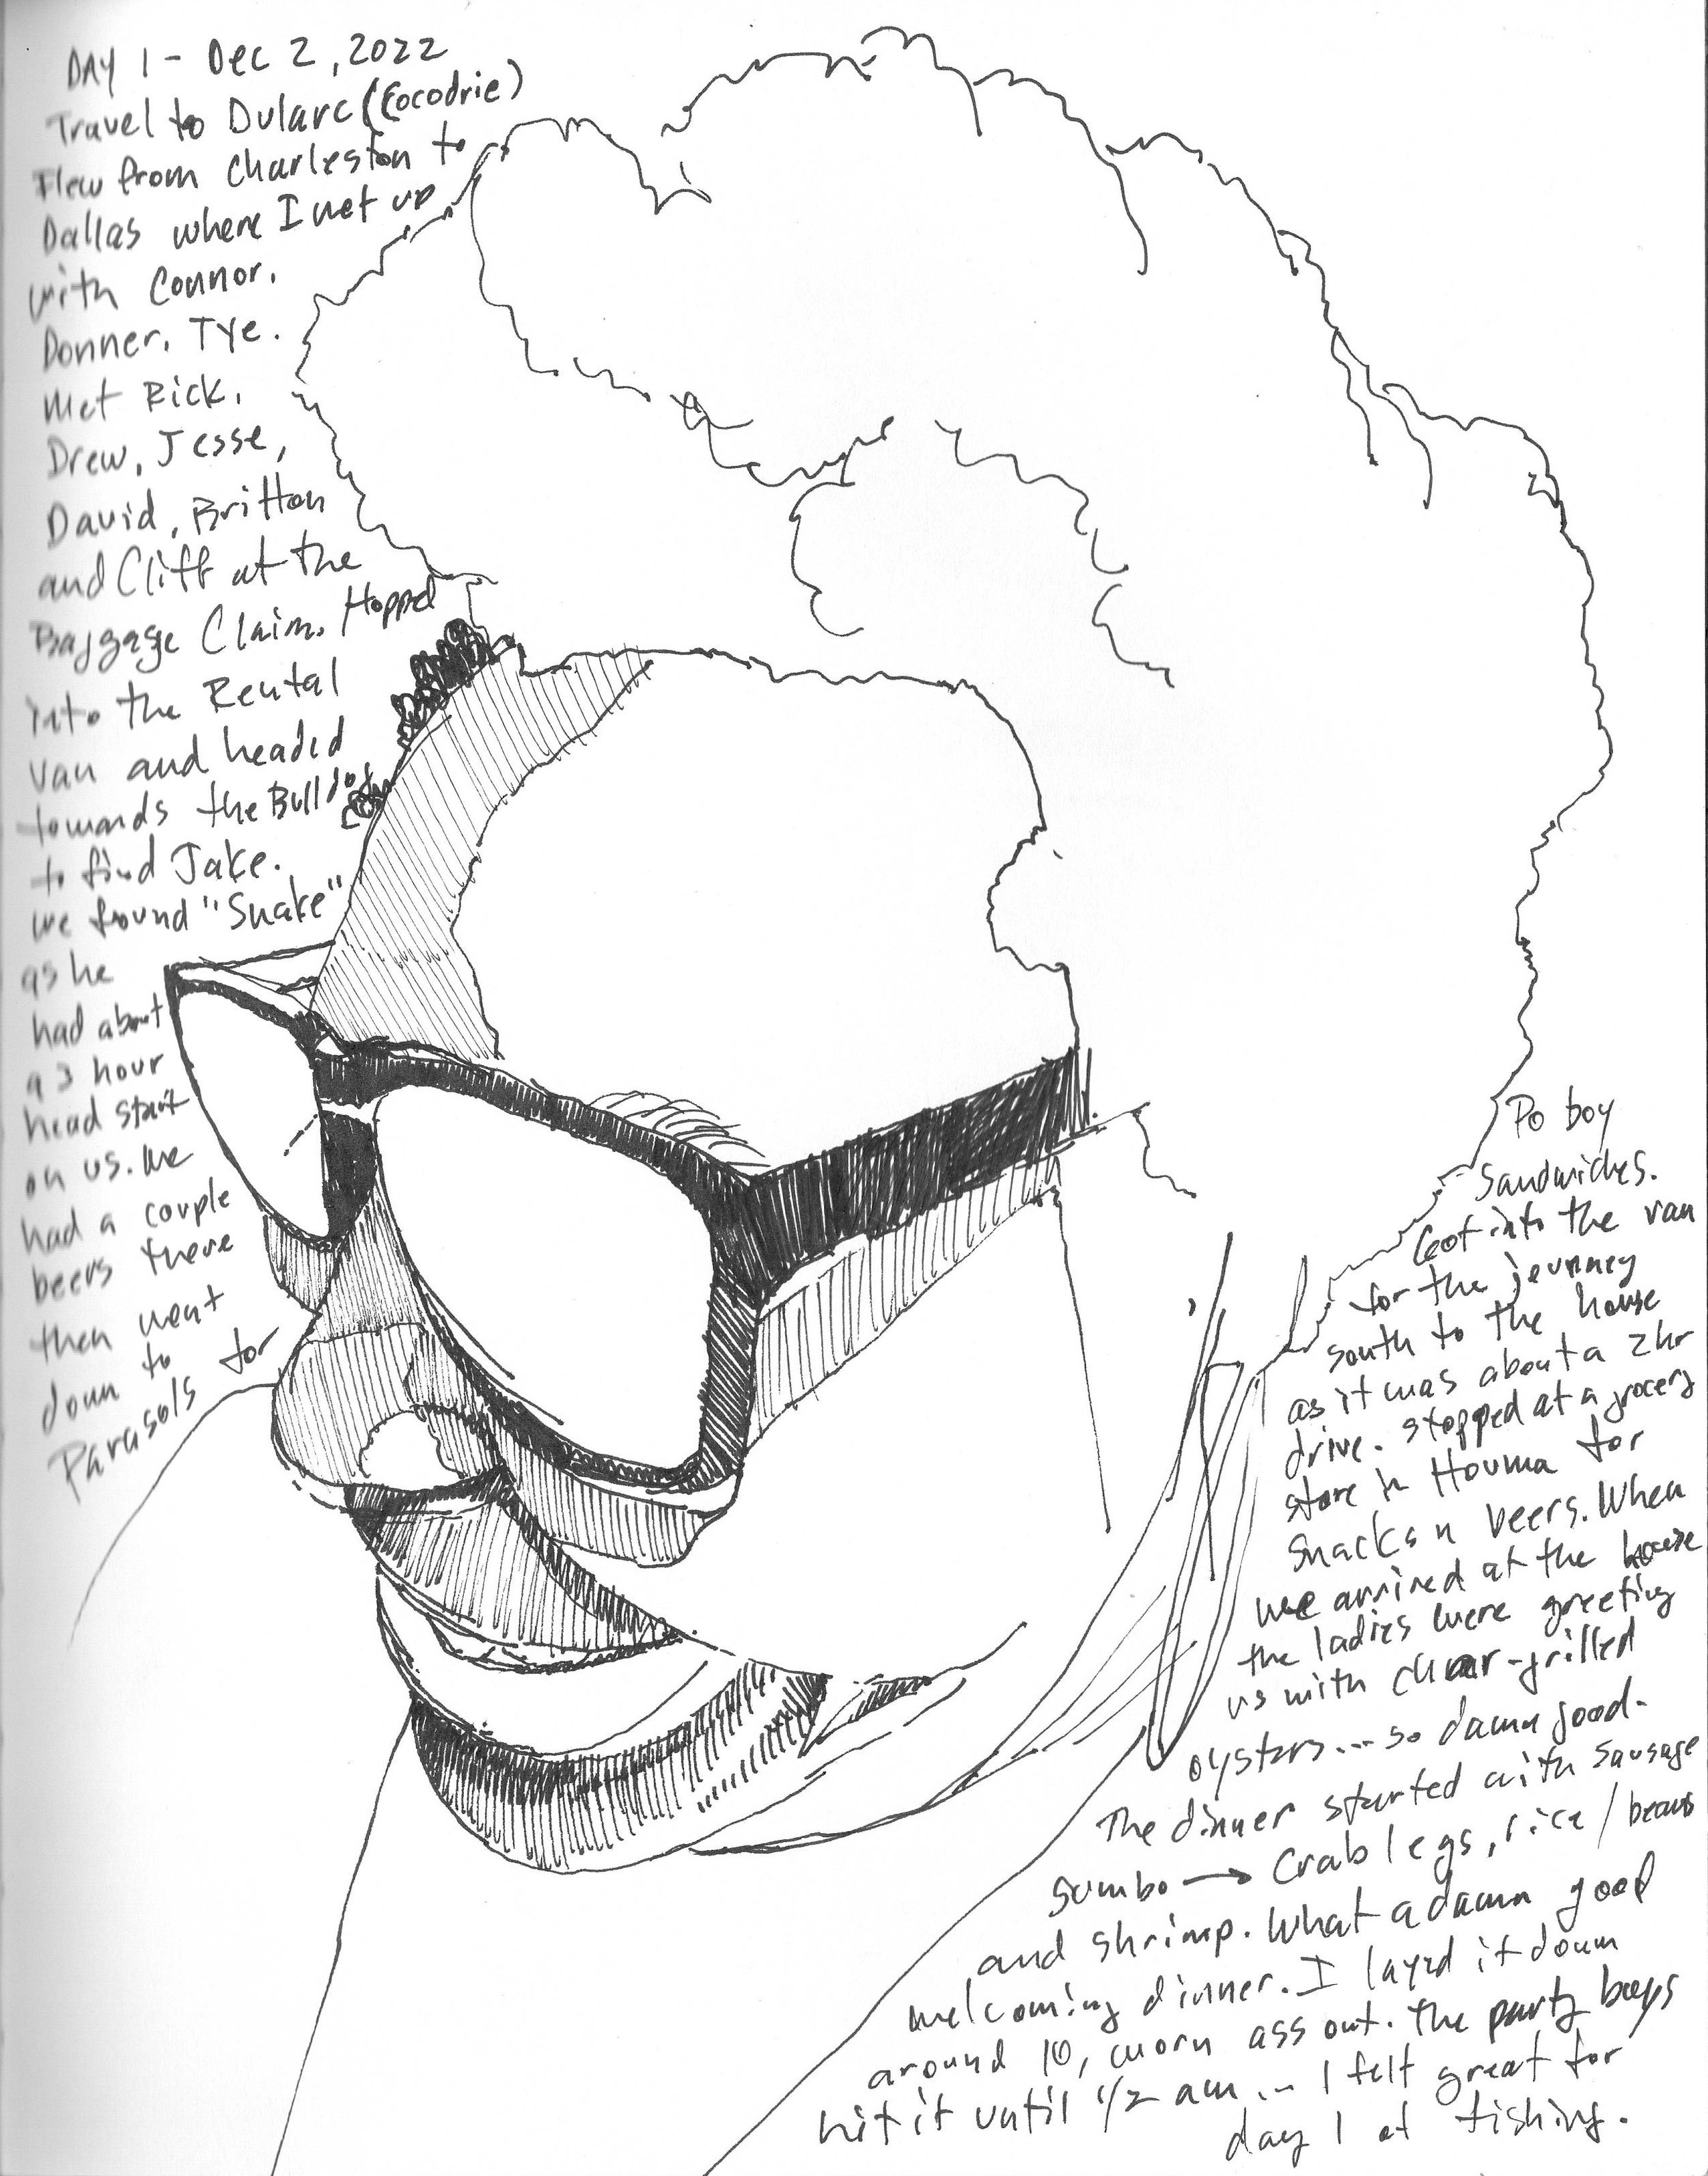 DAY 1 - Dec 2, 2022
Travel to Dularc (Cocodrie)
Flew from Charleston to
Dallas where I met up
with Connor,
Donner, Tye.
Met Rick,
Drew, Jesse,
David, Britton
and Cliff at the
Baggage Claim. Hopped
into the Rental
van and headed
towards the Bulldog
to find Jake.
we found "Snake"
as he
had about
a 3 hour
head start
on us. We
had a couple
beers there
then went
down to
Parasols for
Po boy
Sandwiches.
Got into the van
for the journey
south to the house
as it was about a 2hr
drive. stopped at a grocery
store in Houma for
Snacks n beers. When
we arrived at the house
the ladies were greeting
us with char-grilled
oysters... so damn good.
The dinner started with sausage
gumbo → Crab legs, rice / beans
and shrimp. What a damn good
welcoming dinner. I layed it down
around 10, worn ass out. The party boys
hit it until 1/2 am... I felt great for
day 1 of fishing.